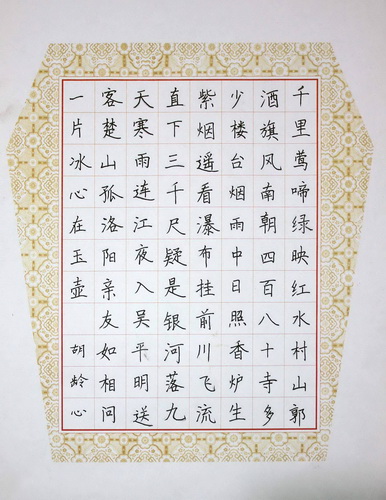 千里莺啼绿映红水村山郭
酒旗风南朝四百八十寺多
少楼台烟雨中日照香炉生
紫烟遥看瀑布挂前川飞流
直下三千尺疑是银河落九
天寒雨连江夜入吴平明送
客楚山孤洛阳亲友如相问
一片冰心在玉壶 胡龄心